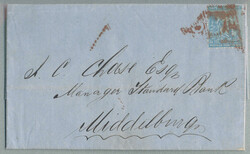 J. C. Chase Esq,
Manager Standard Bank
Middelburg,